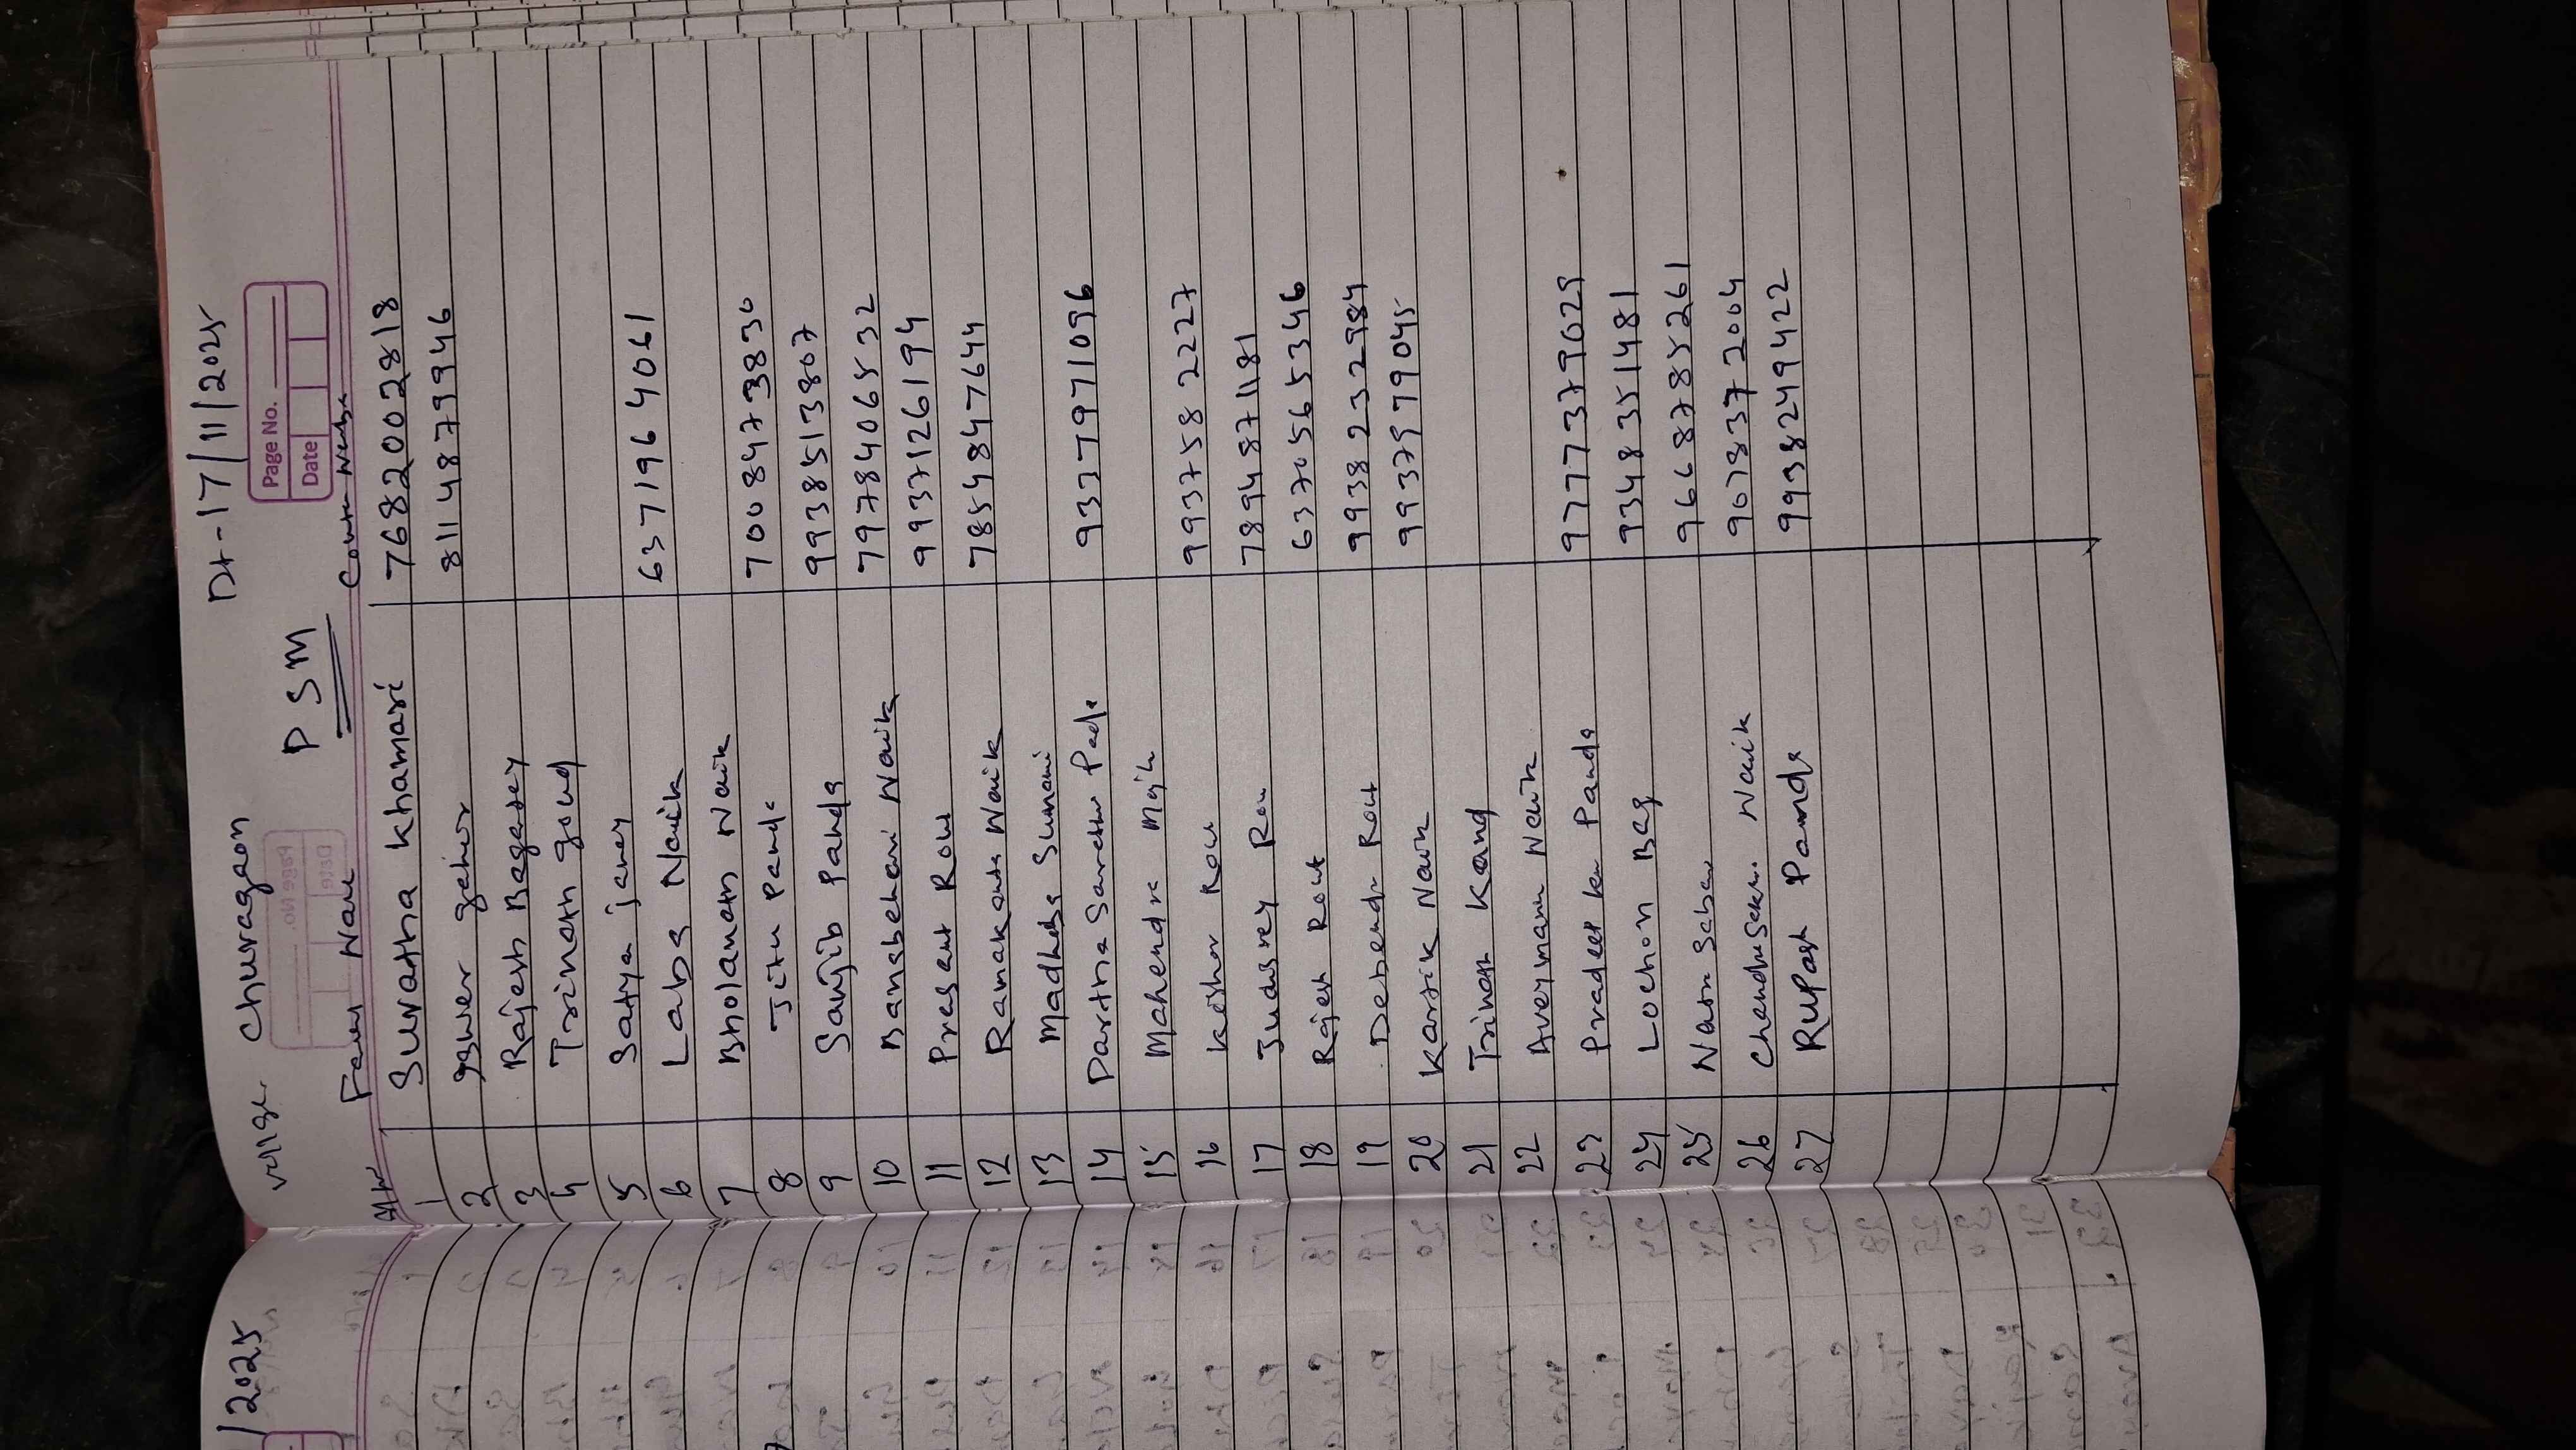 Dt-17/11/2025
Village Churagaon
PSM
Page No.
Date
Farm Name Contact Number
1 Suvatha Khamari 7682002818
2 Iswer gahir 8114879946
3 Rajesh Bagartey
4 Trinath goud
5 Satya janey
6 Laba Naik 6371964061
7 Bholanath Naik
8 Jitu Panda 7008473830
9 Sanjib Panda 9938513807
10 Bansbehari Naik 7978406532
11 Presant Rout 9937126194
12 Ramakanta Naik 7854847644
13 Madhaba Sunani
14 Partha Sarathi Padhi 9337971096
15 Mahendra Majhi
16 Kishor Rout 9937582227
17 Judusrey Rout 7894871181
18 Rajesh Rout 6370565346
19 Debendra Rout 9938232984
20 Kartik Naik 9937979045
21 Trinath Kand
22 Avaymanu Naik
23 Pradeep Ku Panda 9777379029
24 Lochon Bag 9348351481
25 Narm Sabar 9668785261
26 Chandrasekhar Naik 9078372004
27 Rupash Panda 9938249422
/2025